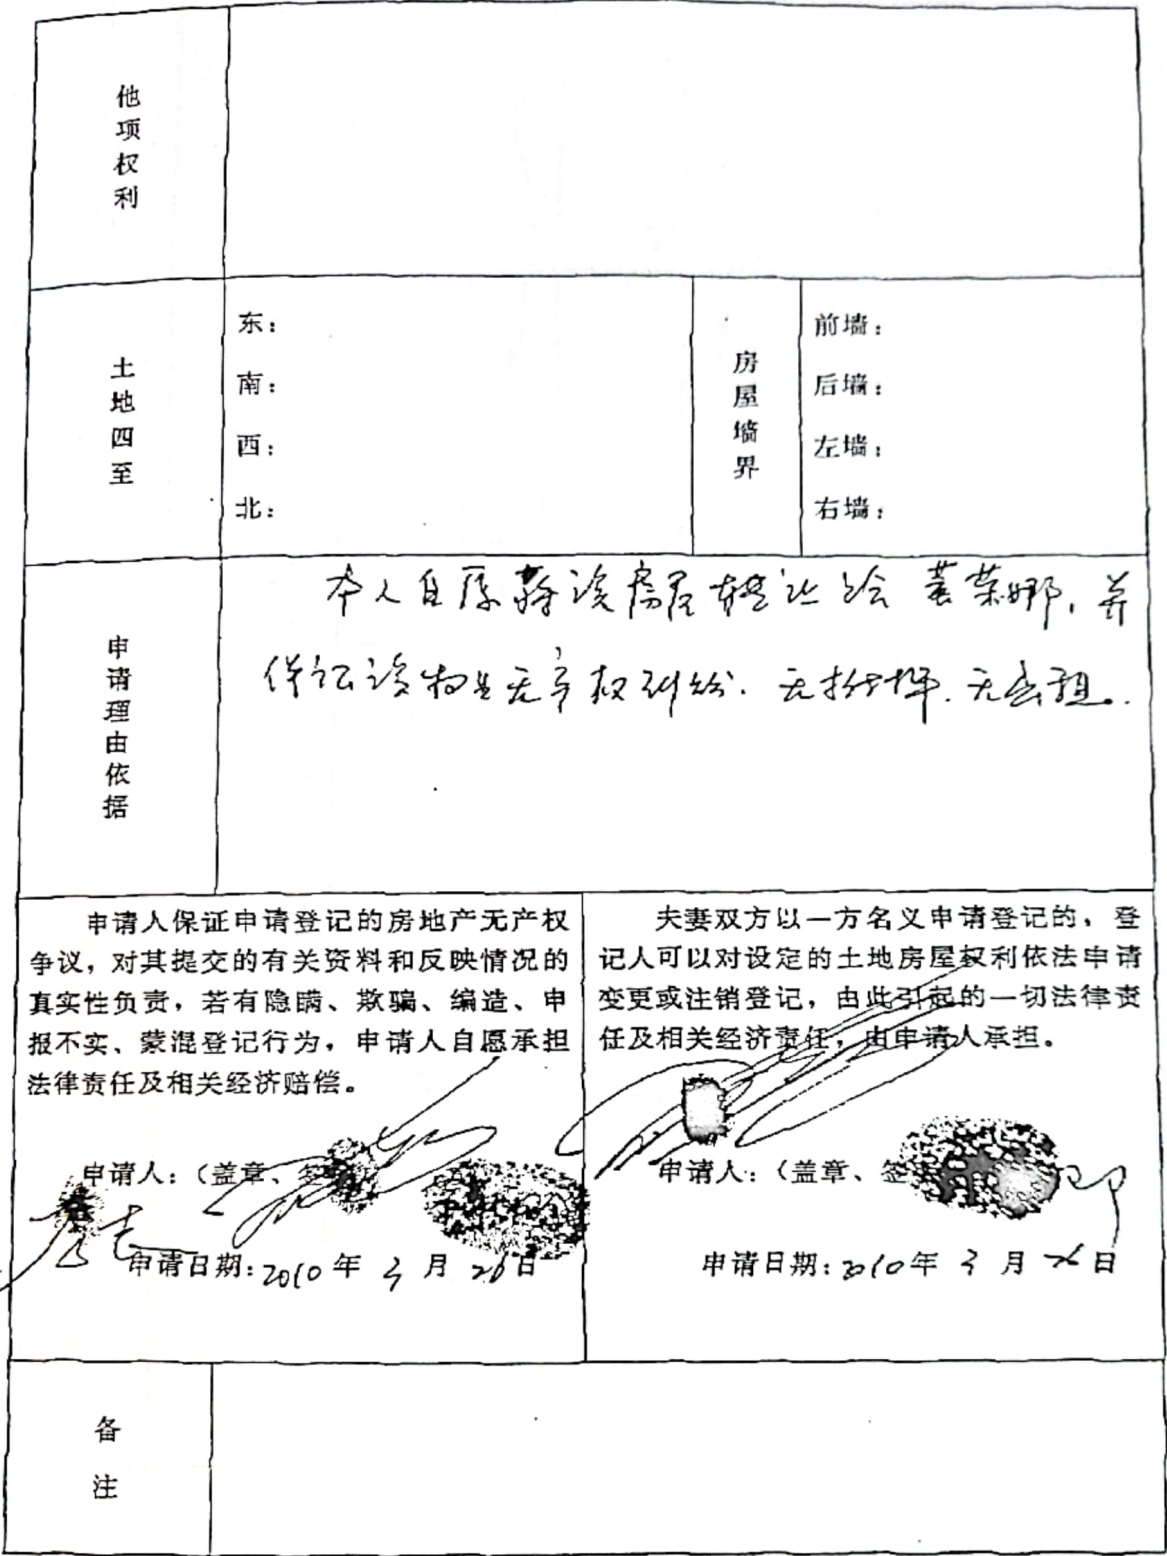 他项权利
土地四至
东：
南：
西：
北：
房屋墙界
前墙：
后墙：
左墙：
右墙：
申请理由依据
本人自愿将该房屋转让给 荣娜，并
保证该物业无产权纠纷．无抵押．无出租．
申请人保证申请登记的房地产无产权
争议，对其提交的有关资料和反映情况的
真实性负责，若有隐瞒、欺骗、编造、申
报不实、蒙混登记行为，申请人自愿承担
法律责任及相关经济赔偿。
申请人：（盖章、签
申请日期：2010年 3 月 26日
夫妻双方以一方名义申请登记的，登
记人可以对设定的土地房屋权利依法申请
变更或注销登记，由此引起的一切法律责
任及相关经济责任，由申请人承担。
申请人：（盖章、签
申请日期：2010年 3 月 26日
备注